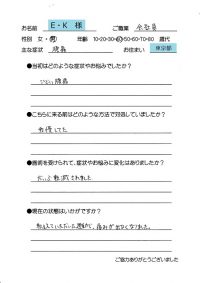 お名前 E・K 様 ご職業 会社員
性別 女・男 年齢 10・20・30・40・50・60・70・80 歳代
主な症状 腰痛 お住まい 東京都
●当初はどのような症状やお悩みでしたか？
ひどい腰痛
●こちらに来る前はどのような方法で対処していましたか？
我慢してた
●施術を受けられて、症状やお悩みに変化はありましたか？
だいぶ軽減されました
●現在の状態はいかがですか？
教えていただいた運動で、痛みが出なくなりました。
ご協力ありがとうございました